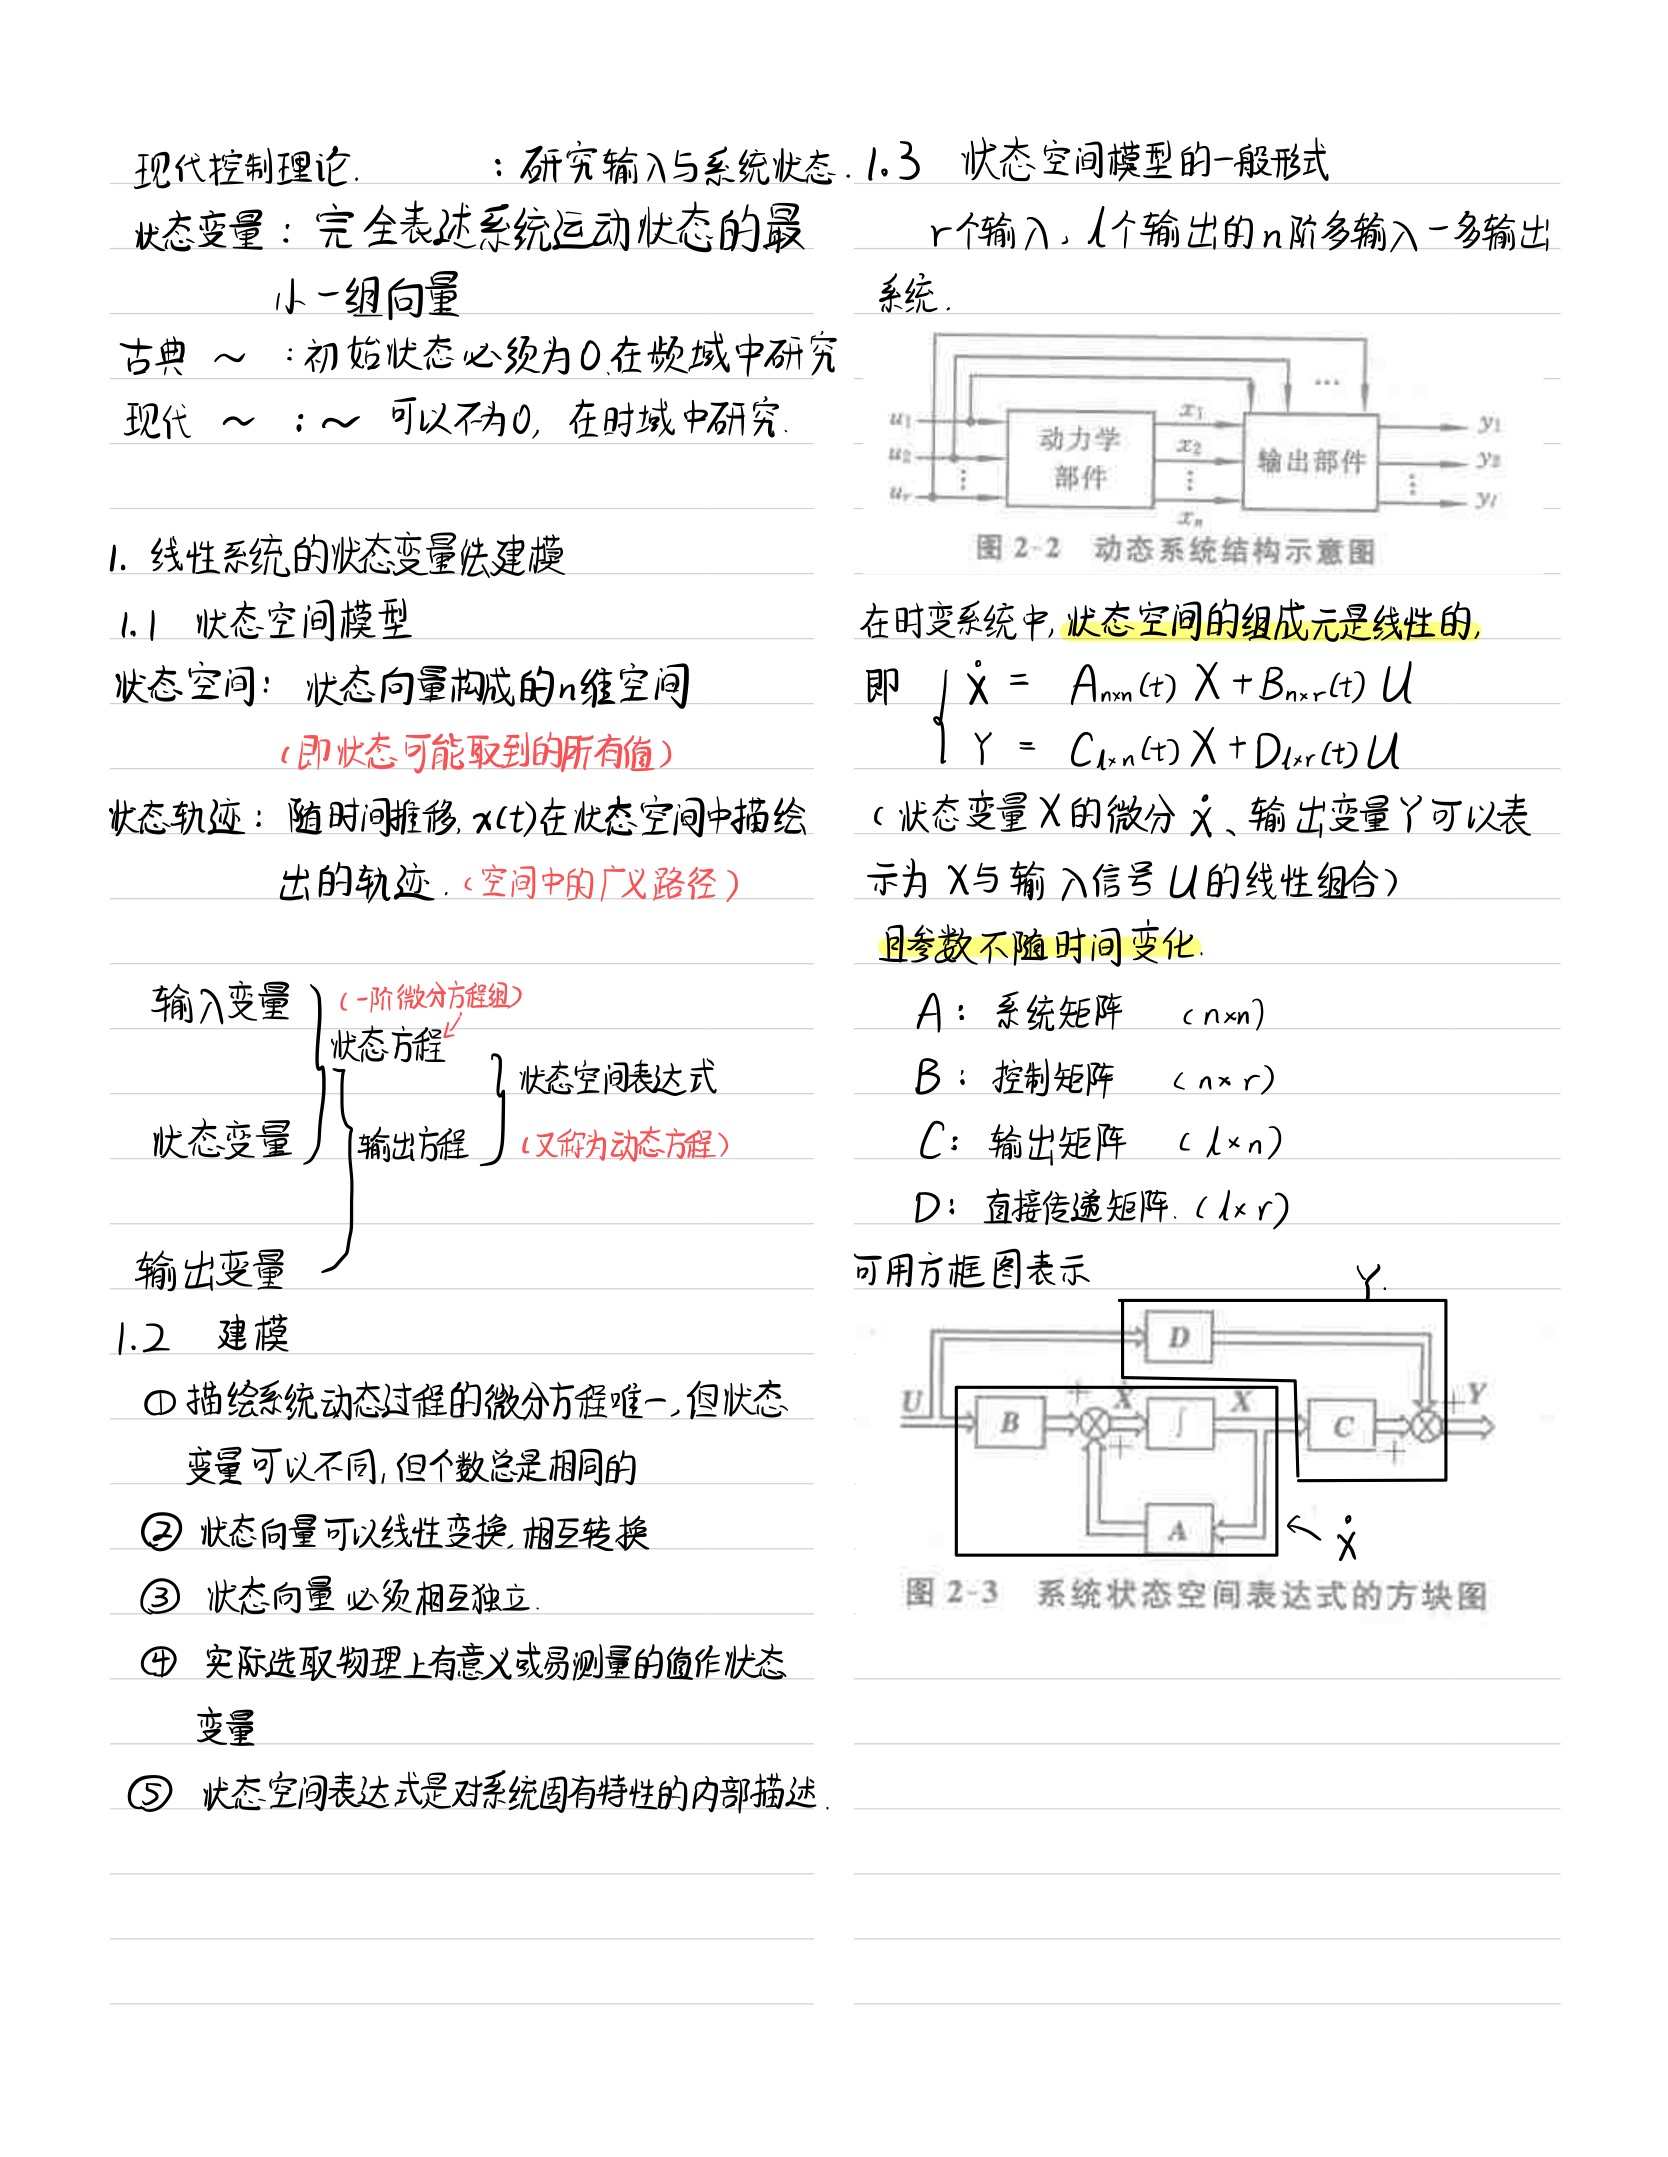 现代控制理论. : 研究输入与系统状态.
状态变量: 完全表述系统运动状态的最
小一组向量
古典 ~ : 初始状态必须为0.在频域中研究
现代 ~ : ~ 可以不为0, 在时域中研究.
1. 线性系统的状态变量法建模
1.1 状态空间模型
状态空间: 状态向量构成的n维空间
(即状态可能取到的所有值)
状态轨迹: 随时间推移, x(t)在状态空间中描绘
出的轨迹. (空间中的广义路径)
输入变量
(一阶微分方程组)
状态方程
状态空间表达式
状态变量
输出方程
(又称为动态方程)
输出变量
1.2 建模
① 描绘系统动态过程的微分方程唯一, 但状态
变量可以不同, 但个数总是相同的
② 状态向量可以线性变换, 相互转换
③ 状态向量必须相互独立.
④ 实际选取物理上有意义或易测量的值作状态
变量
⑤ 状态空间表达式是对系统固有特性的内部描述.
1.3 状态空间模型的一般形式
r个输入, l个输出的n阶多输入-多输出
系统.
u1 u2 ⋮ ur
动力学
部件
x1 x2 ⋮ xn
输出部件
…
y1 y2 ⋮ yl
图 2-2 动态系统结构示意图
在时变系统中, 状态空间的组成元是线性的,
即 { Ẋ = Anxn(t) X + Bnxr(t) U
Y = Clxn(t) X + Dlxr(t) U
(状态变量X的微分Ẋ、输出变量Y可以表
示为X与输入信号U的线性组合)
且参数不随时间变化.
A: 系统矩阵 (n×n)
B: 控制矩阵 (n×r)
C: 输出矩阵 (l×n)
D: 直接传递矩阵. (l×r)
可用方框图表示
Y.
D
U B + Ẋ ∫ X C + Y
+ +
A
Ẋ
图 2-3 系统状态空间表达式的方块图